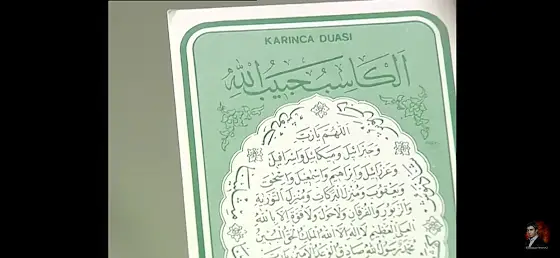 KARINCA DUASI
الكاسب حبيب الله
اللهم يارب
وجبرائيل وميكائيل واسرافيل
وعزرائيل وابراهيم واسمعيل واسحق
ويعقوب ومنزل البركات ومنزل التورية
والزبور والفرقان ولاحول ولاقوة الا بالله
العلى العظيم لا اله الا الله الملك الحق المبين
محمد رسول الله صادق الوعد الامين